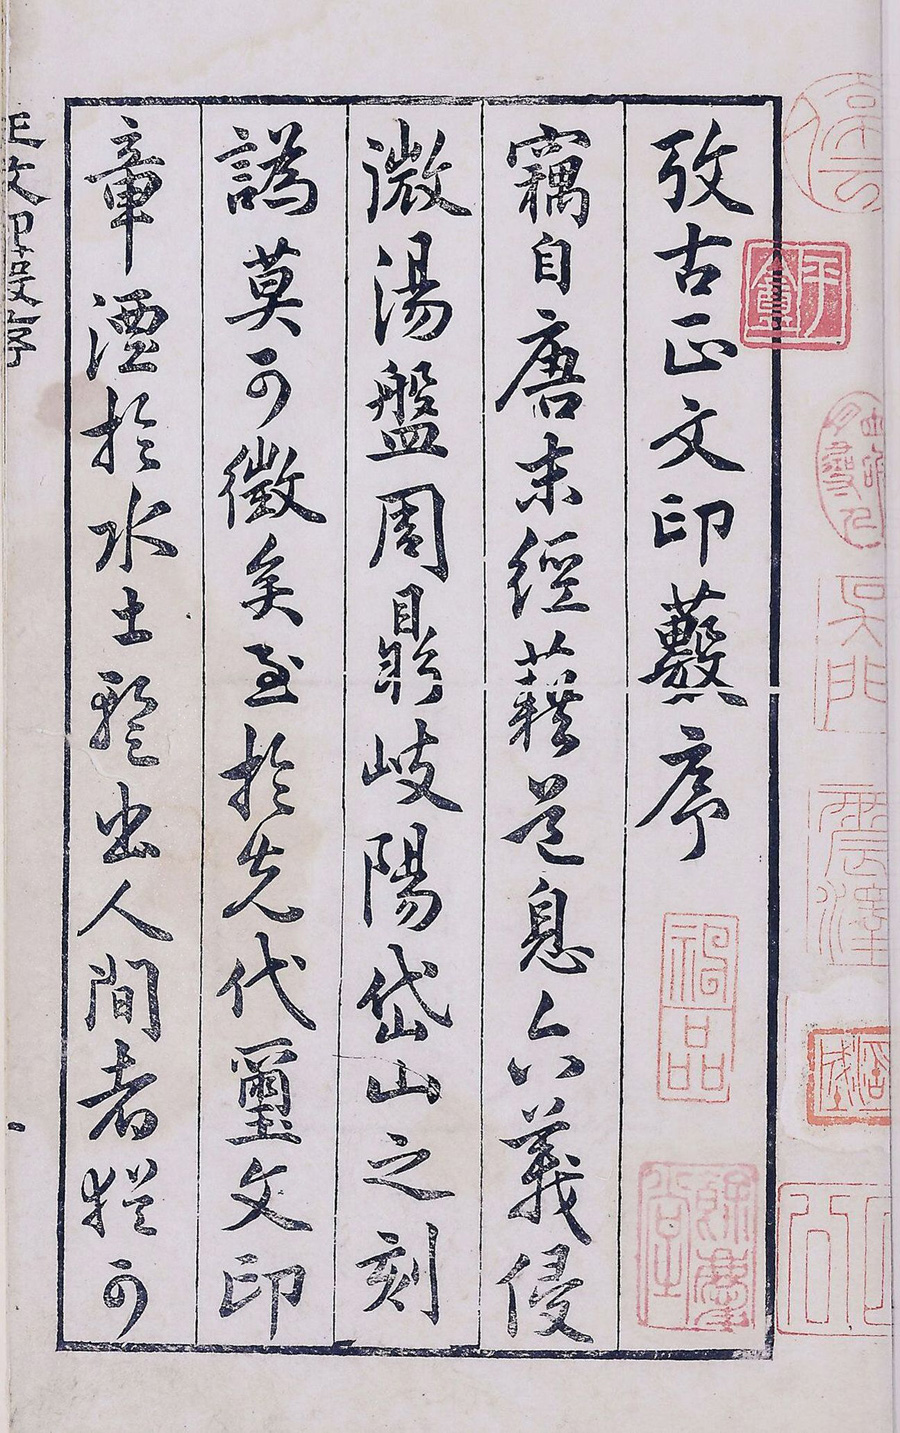 攷古正文印藪序
竊自唐末經藉道息六義侵
微湯盤周鼎岐陽岱山之刻
譌莫可徵矣至於先代璽文印
章湮於水土蹔出人間者猶可
正文印藪序
祕品